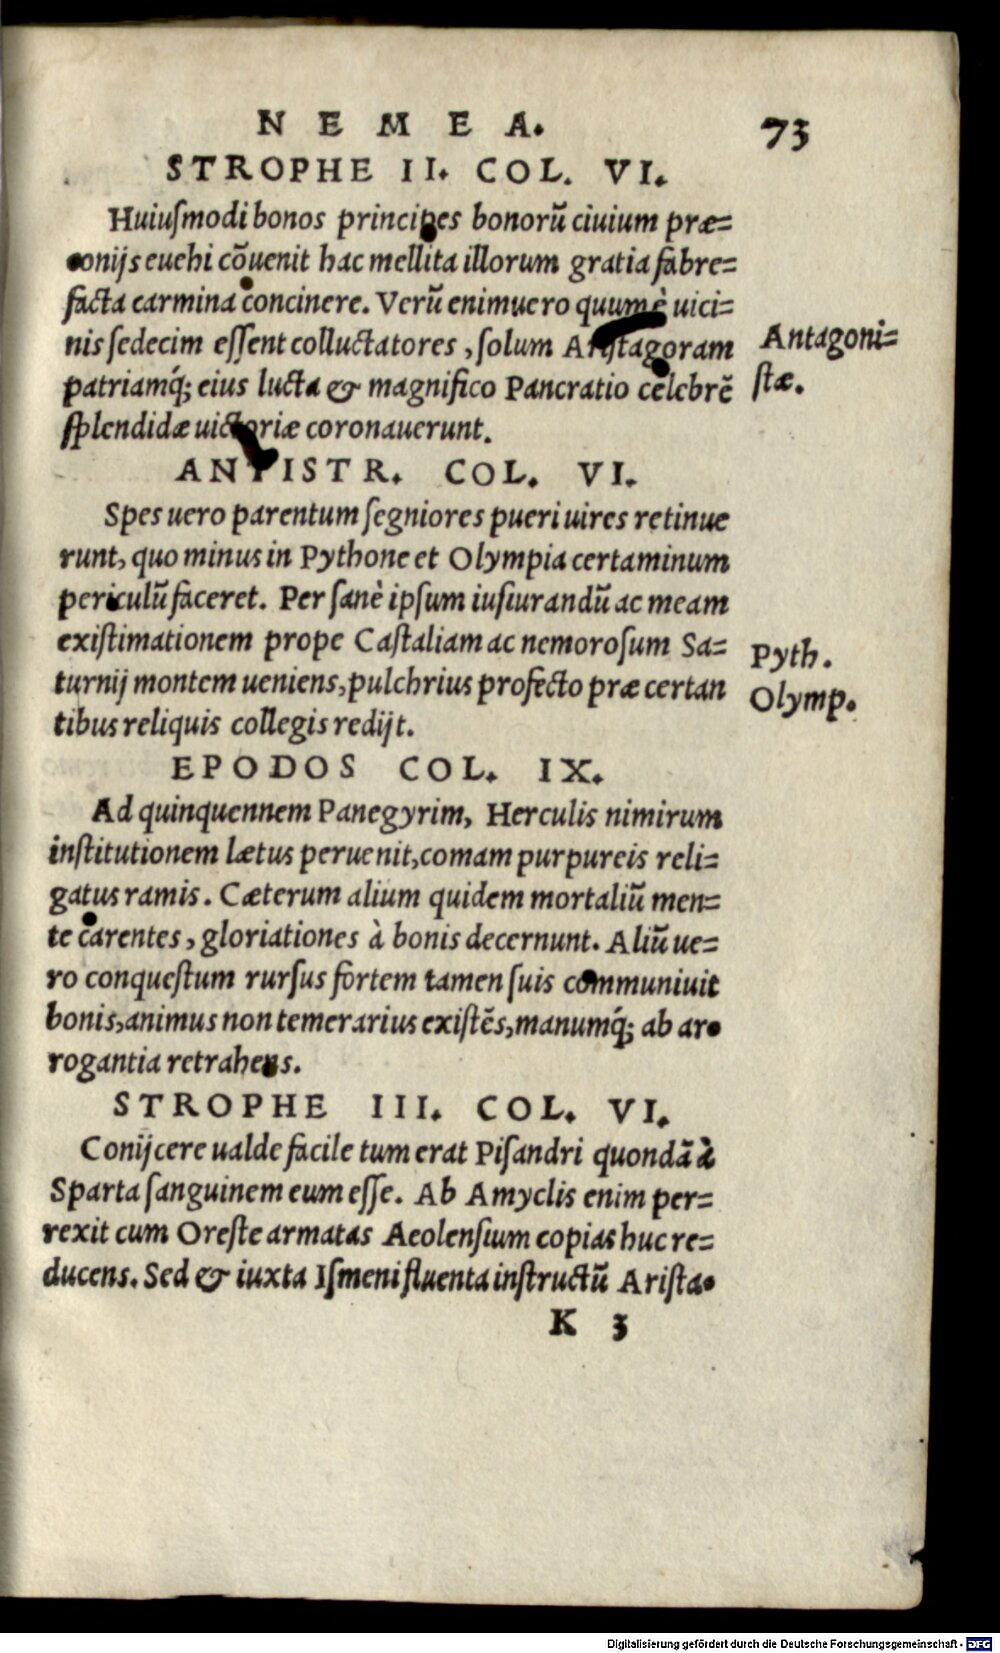 NEMEA. 73
STROPHE II. COL. VI.
Huiuſmodi bonos principes bonorũ ciuium præ=
conijs euehi cõuenit hac mellita illorum gratia fabre=
facta carmina concinere. Verũ enimuero quum è uici=
nis ſedecim eſſent colluctatores, ſolum Ariſtagoram
Antagoni=
patriamq́; eius lucta & magnifico Pancratio celebrẽ
ſtæ.
ſplendidæ uictoriæ coronauerunt.
ANTISTR. COL. VI.
Spes uero parentum ſegniores pueri uires retinue
runt, quo minus in Pythone et Olympia certaminum
periculũ faceret. Per ſanè ipſum iuſiurandũ ac meam
exiſtimationem prope Caſtaliam ac nemoroſum Sa=
Pyth.
turnij montem ueniens, pulchrius profecto præ certan
Olymp.
tibus reliquis collegis redijt.
EPODOS COL. IX.
Ad quinquennem Panegyrim, Herculis nimirum
inſtitutionem lætus peruenit, comam purpureis reli=
gatus ramis. Cæterum alium quidem mortaliũ men=
te carentes, gloriationes à bonis decernunt. Aliũ ue=
ro conqueſtum rurſus fortem tamen ſuis communiuit
bonis, animus non temerarius exiſtẽs, manumq́; ab ar=
rogantia retrahens.
STROPHE III. COL. VI.
Conijcere ualde facile tum erat Piſandri quondã à
Sparta ſanguinem eum eſſe. Ab Amyclis enim per=
rexit cum Oreſte armatas Aeolenſium copias huc re=
ducens. Sed & iuxta Iſmeni fluenta inſtructũ Ariſta=
K 3
Digitalisierung gefördert durch die Deutsche Forschungsgemeinschaft - DFG